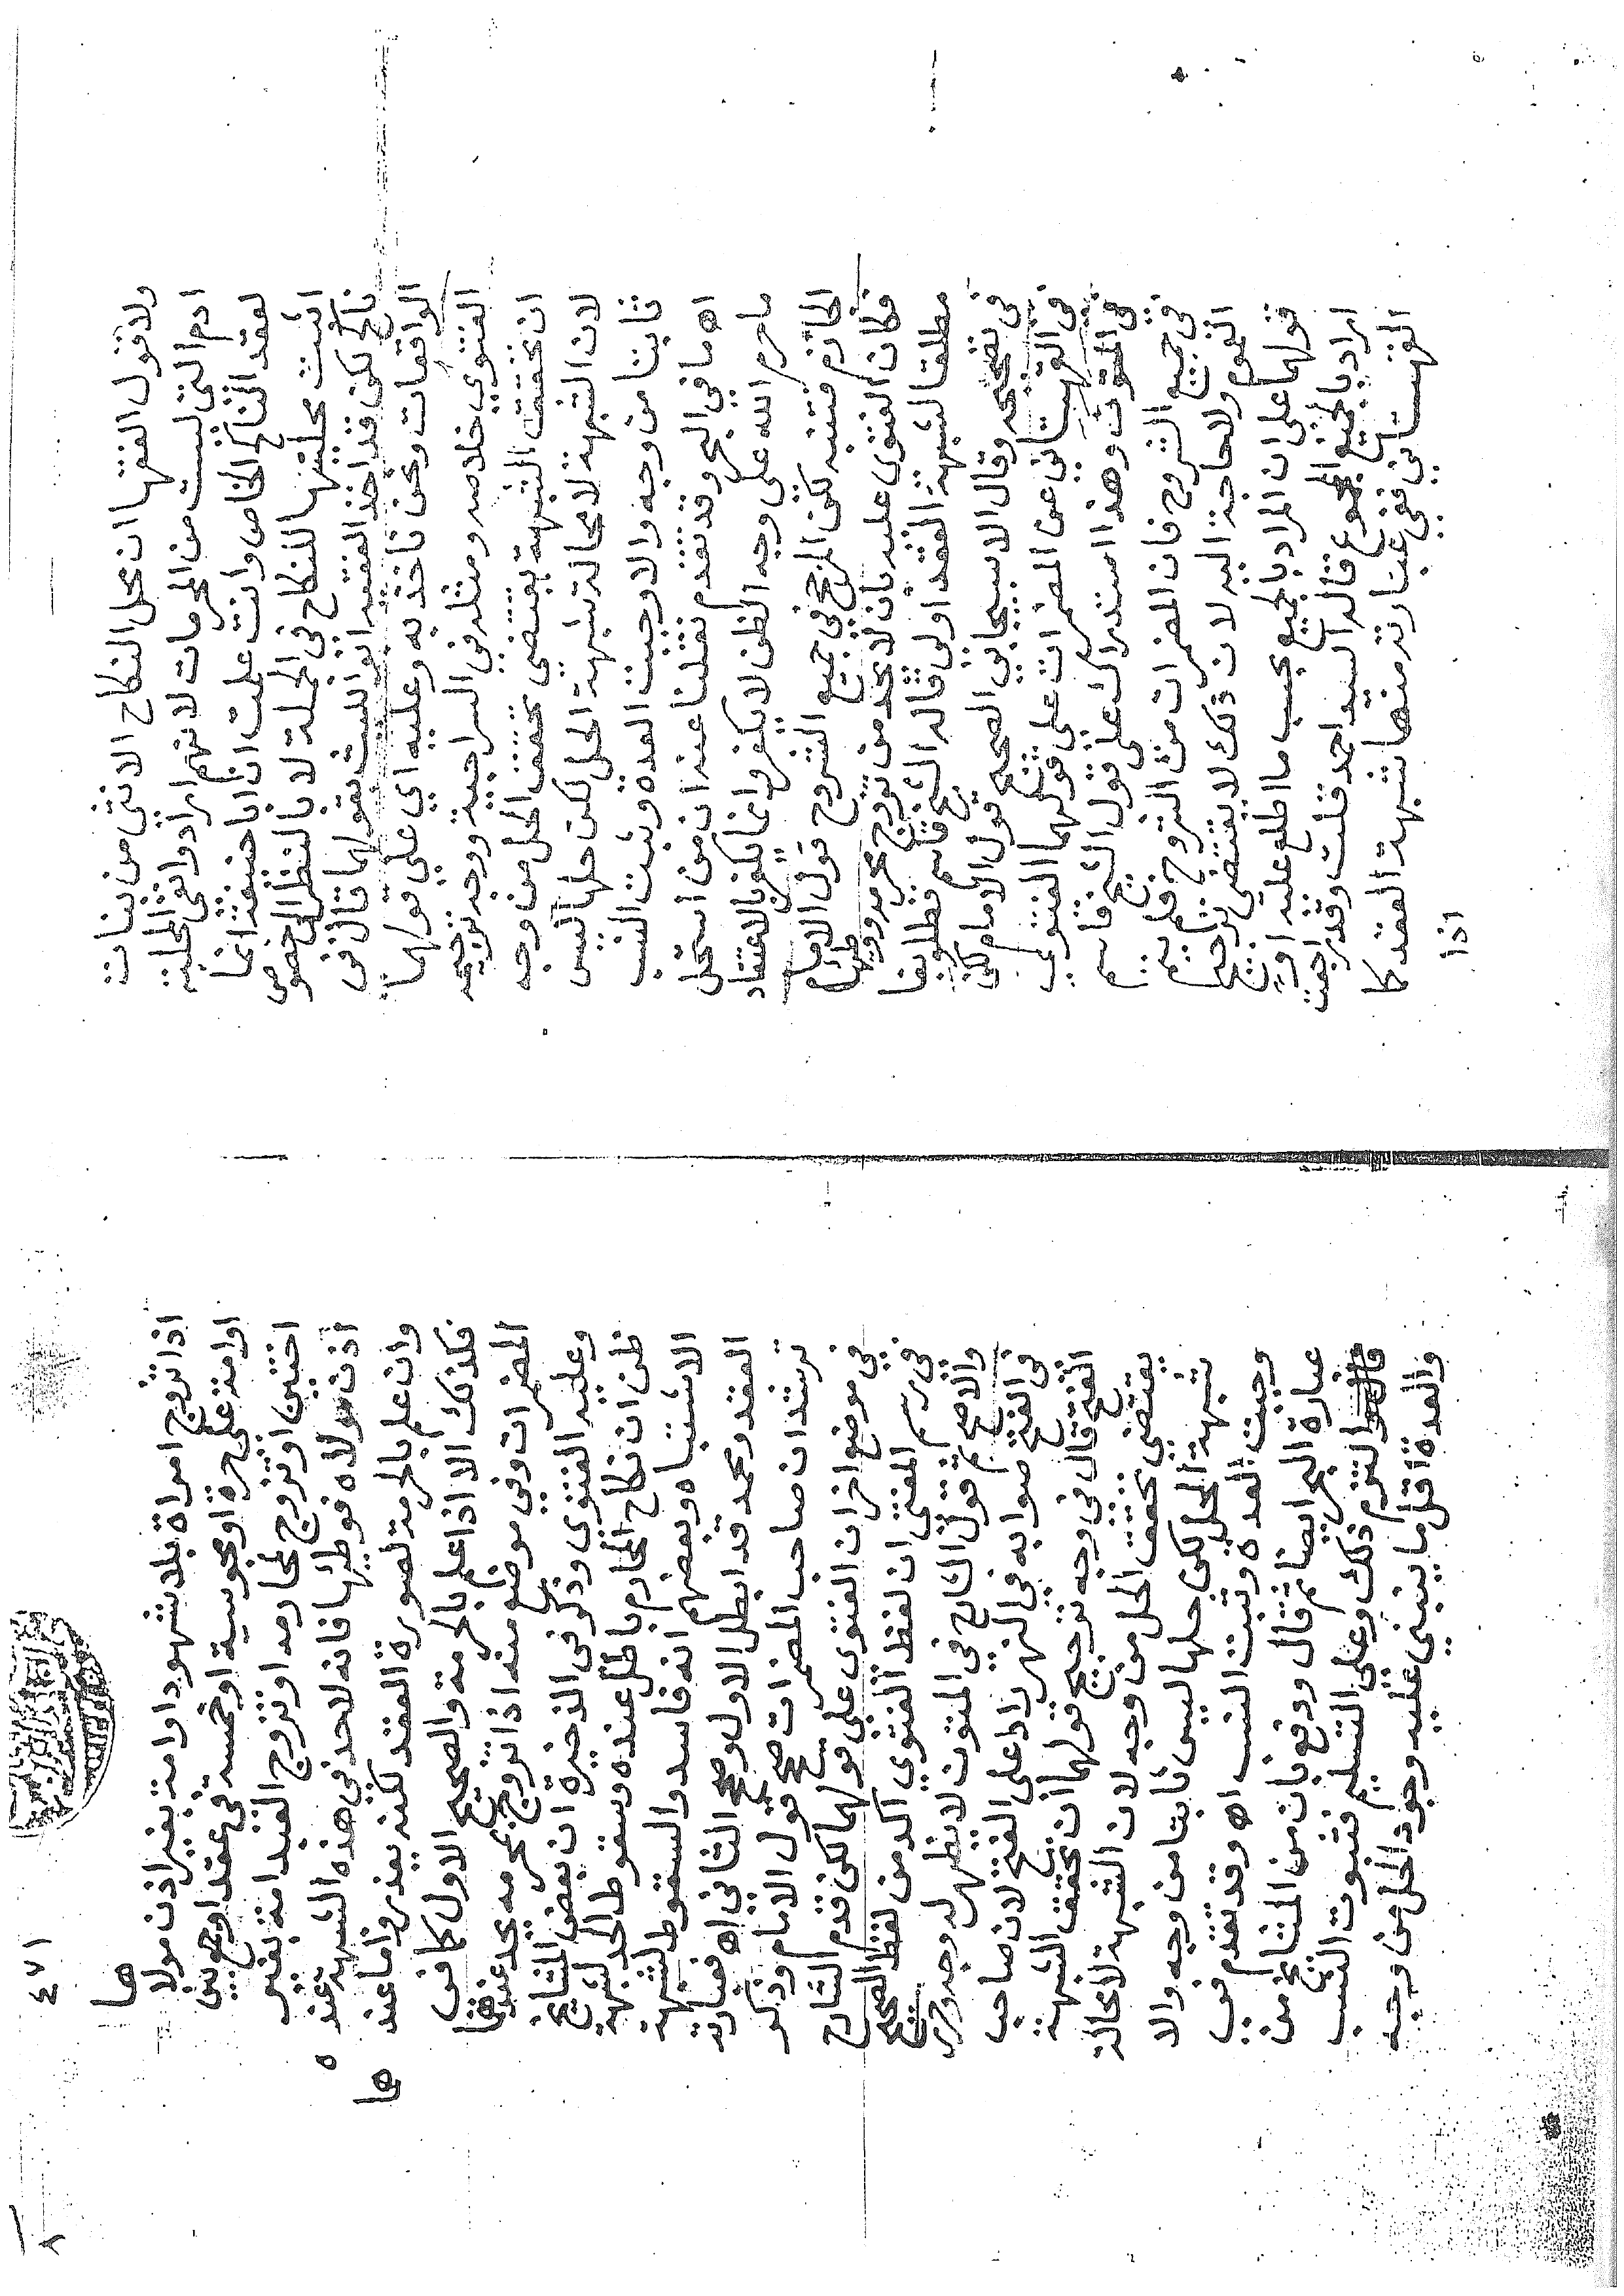 ولا قول الفقها ان محل النكاح الانثى من بنات
ادم التي ليست من المحرمات لانهم ارادوا نفي المحلية
لعقد الناكح الخاص وانت علمت ان ابا حنيفة انما
اثبت محليتها للنكاح في الجملة لا بالنظر الى خصوص
ناكح لكن قد اخذ الفقيه ابو الليث بقولهما قال في
الواقعات ونحن ناخذ به وعليه اي على قولهما
الفتوى خلاصه ومثله في السراجية ووجه ترجيحه
ان تحقق الشبهة يقتضي تحقق الحل من وجه
لان الشبهة لا محالة شبهة الحل لكن حلها ليس
ثابتا من وجه والا وجبت العدة وثبت النسب
اه ما في البحر وقد تقدم نقلنا عنه ان من استحل
ما حرم الله على وجه الظن لا يكفر وانما يكفر بالاعتقاد
الجازم فتنبه لكن المرجح في جميع الشروح قول الامام
فكان الفتوى عليه بان لا يحد من تزوج محرمه ووطئها
مطلقا لشبهة العقد اولى قاله الشيخ قاسم قطلوبغا
في تصحيحه وقال الاسبيجابي الصحيح قول الامام لكن
في القهستاني عن المضمرات على قولهما الفتوى
في المتون وهذا استدراك على قول الشيخ قاسم
في جميع الشروح فان المضمرات من الشروح فلم يتم
العموم ولا حاجة اليه لان ذلك لا يقتضي ترجيح
قولهما على ان المراد بالجميع بحسب ما اطلع عليه او
اراد بالجميع المجموع قاله السيد احمد قلت وقد راجعت
القهستاني ففي عبارته منها شبهة العقد كما
اذا
٤٧١
اذا تزوج امراة بلا شهود او امة بغير اذن مولاها
او امة على حرة او مجوسية او خمسة في عقد او جمع بين
اختين او تزوج لمحارمه او تزوج العبد امة بغير
اذن مولاه فوطيها فانه لا حد في هذه الشبهة عنده
وان علم بالحرمة لصورة العقد لكنه يعذر واما عندهما
فكذلك الا اذا علم بالحرمة والصحيح الاول كما في
المضمرات وفي موضع منه اذا تزوج بمحرمه يحد عندهما
وعليه الفتوى وذكر في الذخيرة ان بعض المشايخ
ظن ان نكاح المحارم باطل عنده وسقوط الحد لشبهة
الاشتباه وبعضهم انه فاسد والسقوط لشبهة
العقد ومحمد قد ابطل الاول وصحح الثاني اه فعبارته
ترشد ان صاحب المضمرات صحح قول الامام وذكر
في موضع اخر ان الفتوى على قولهما لكن قدم الشارح
في رسم المفتي ان لفظ الفتوى اكد من لفظ الصحيح
والاصح ثم قول الشارح في المتون لا يظهر له وجه وحرر
في الفتح صوابه في النهر زاد على الفتح لان صاحب
الفتح قال في وجه ترجيح قولهما ان تحقق الشبهة
يقتضي تحقق الحل من وجه لان الشبهة لا محالة
شبهة الحل لكن حلها ليس ثابتا من وجه والا
وجبت العدة وثبت النسب اه وقد تقدم في
عبارة البحر ايضا ثم قال ودفع بان من المشايخ من
التزم ذلك وعلى التسليم فثبوت النسب
والعدة اقل ما يبنى عليه وجود الحل من وجه